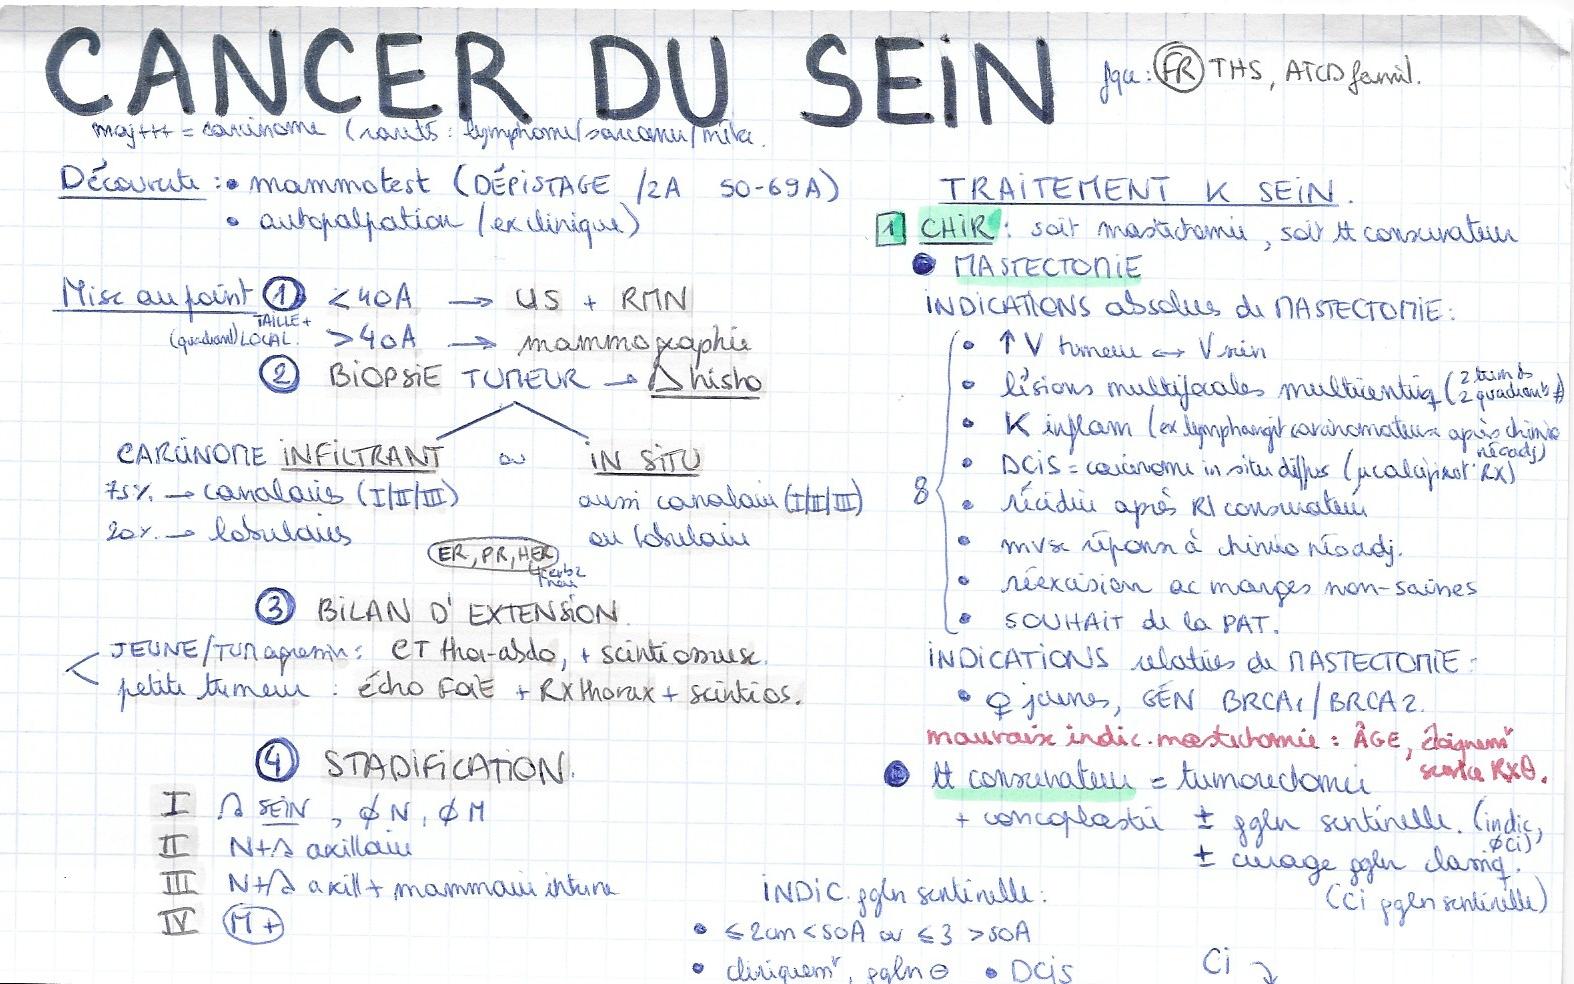 CANCER DU SEIN
fqce : FR THS, ATCD famil.
maj+++ = carcinome (rareté : lymphome/sarcome/méta.
Découverte : • mammotest (DÉPISTAGE /2A 50-69A)
• autopalpation (ex clinique)
Mise au point ① <40A → US + RMN
TAILLE +
(quadrant) LOCAL. >40A → mammographie
② BIOPSIE TUMEUR → Δ histo
CARCINOME INFILTRANT ou IN SITU
75% → canalaire (I/II/III) aussi canalaire (I/II/III)
20% → lobulaires ou lobulaire
ER, PR, HER
cerb2
neu
③ BILAN D'EXTENSION
JEUNE/TUM agressiv : CT thor-abdo, + scintiosseuse.
petite tumeur : écho FOIE + RX thorax + scintios.
④ STADIFICATION.
I SEIN, ∅ N, ∅ M
II N+ axillaire
III N+ axill + mammaire interne
IV M+
TRAITEMENT K SEIN.
1 CHIR : soit mastectomie, soit tt conservateur
• MASTECTOMIE
INDICATIONS absolues de MASTECTOMIE :
8
• ↑ V tumeur ↔ V sein
• lésions multifocales multicentriq (2 tum ds
2 quadrants ≠)
• K inflam (ex lymphangit carcinomateuse après chimio
néoadj)
• DCIS = carcinome in situ diffus (µcalcif RX)
• récidive après R/ conservateur
• mvse réponse à chimio néoadj.
• réexcision ac marges non-saines
• SOUHAIT de la PAT.
INDICATIONS relatives de MASTECTOMIE :
• ♀ jeunes, GÉN BRCA1/BRCA2.
mauvaise indic. mastectomie : ÂGE, éloignemt
RXθ.
• tt conservateur = tumorectomie
+ oncoplastie ± ggln sentinelle. (indic,
∅ CI)
± curage ggln classiq.
(CI ggln sentinelle)
INDIC. ggln sentinelle :
• ≤ 2cm <50A ou ≤3 >50A
• cliniquemt, ggln ⊖ • DCIS
CI